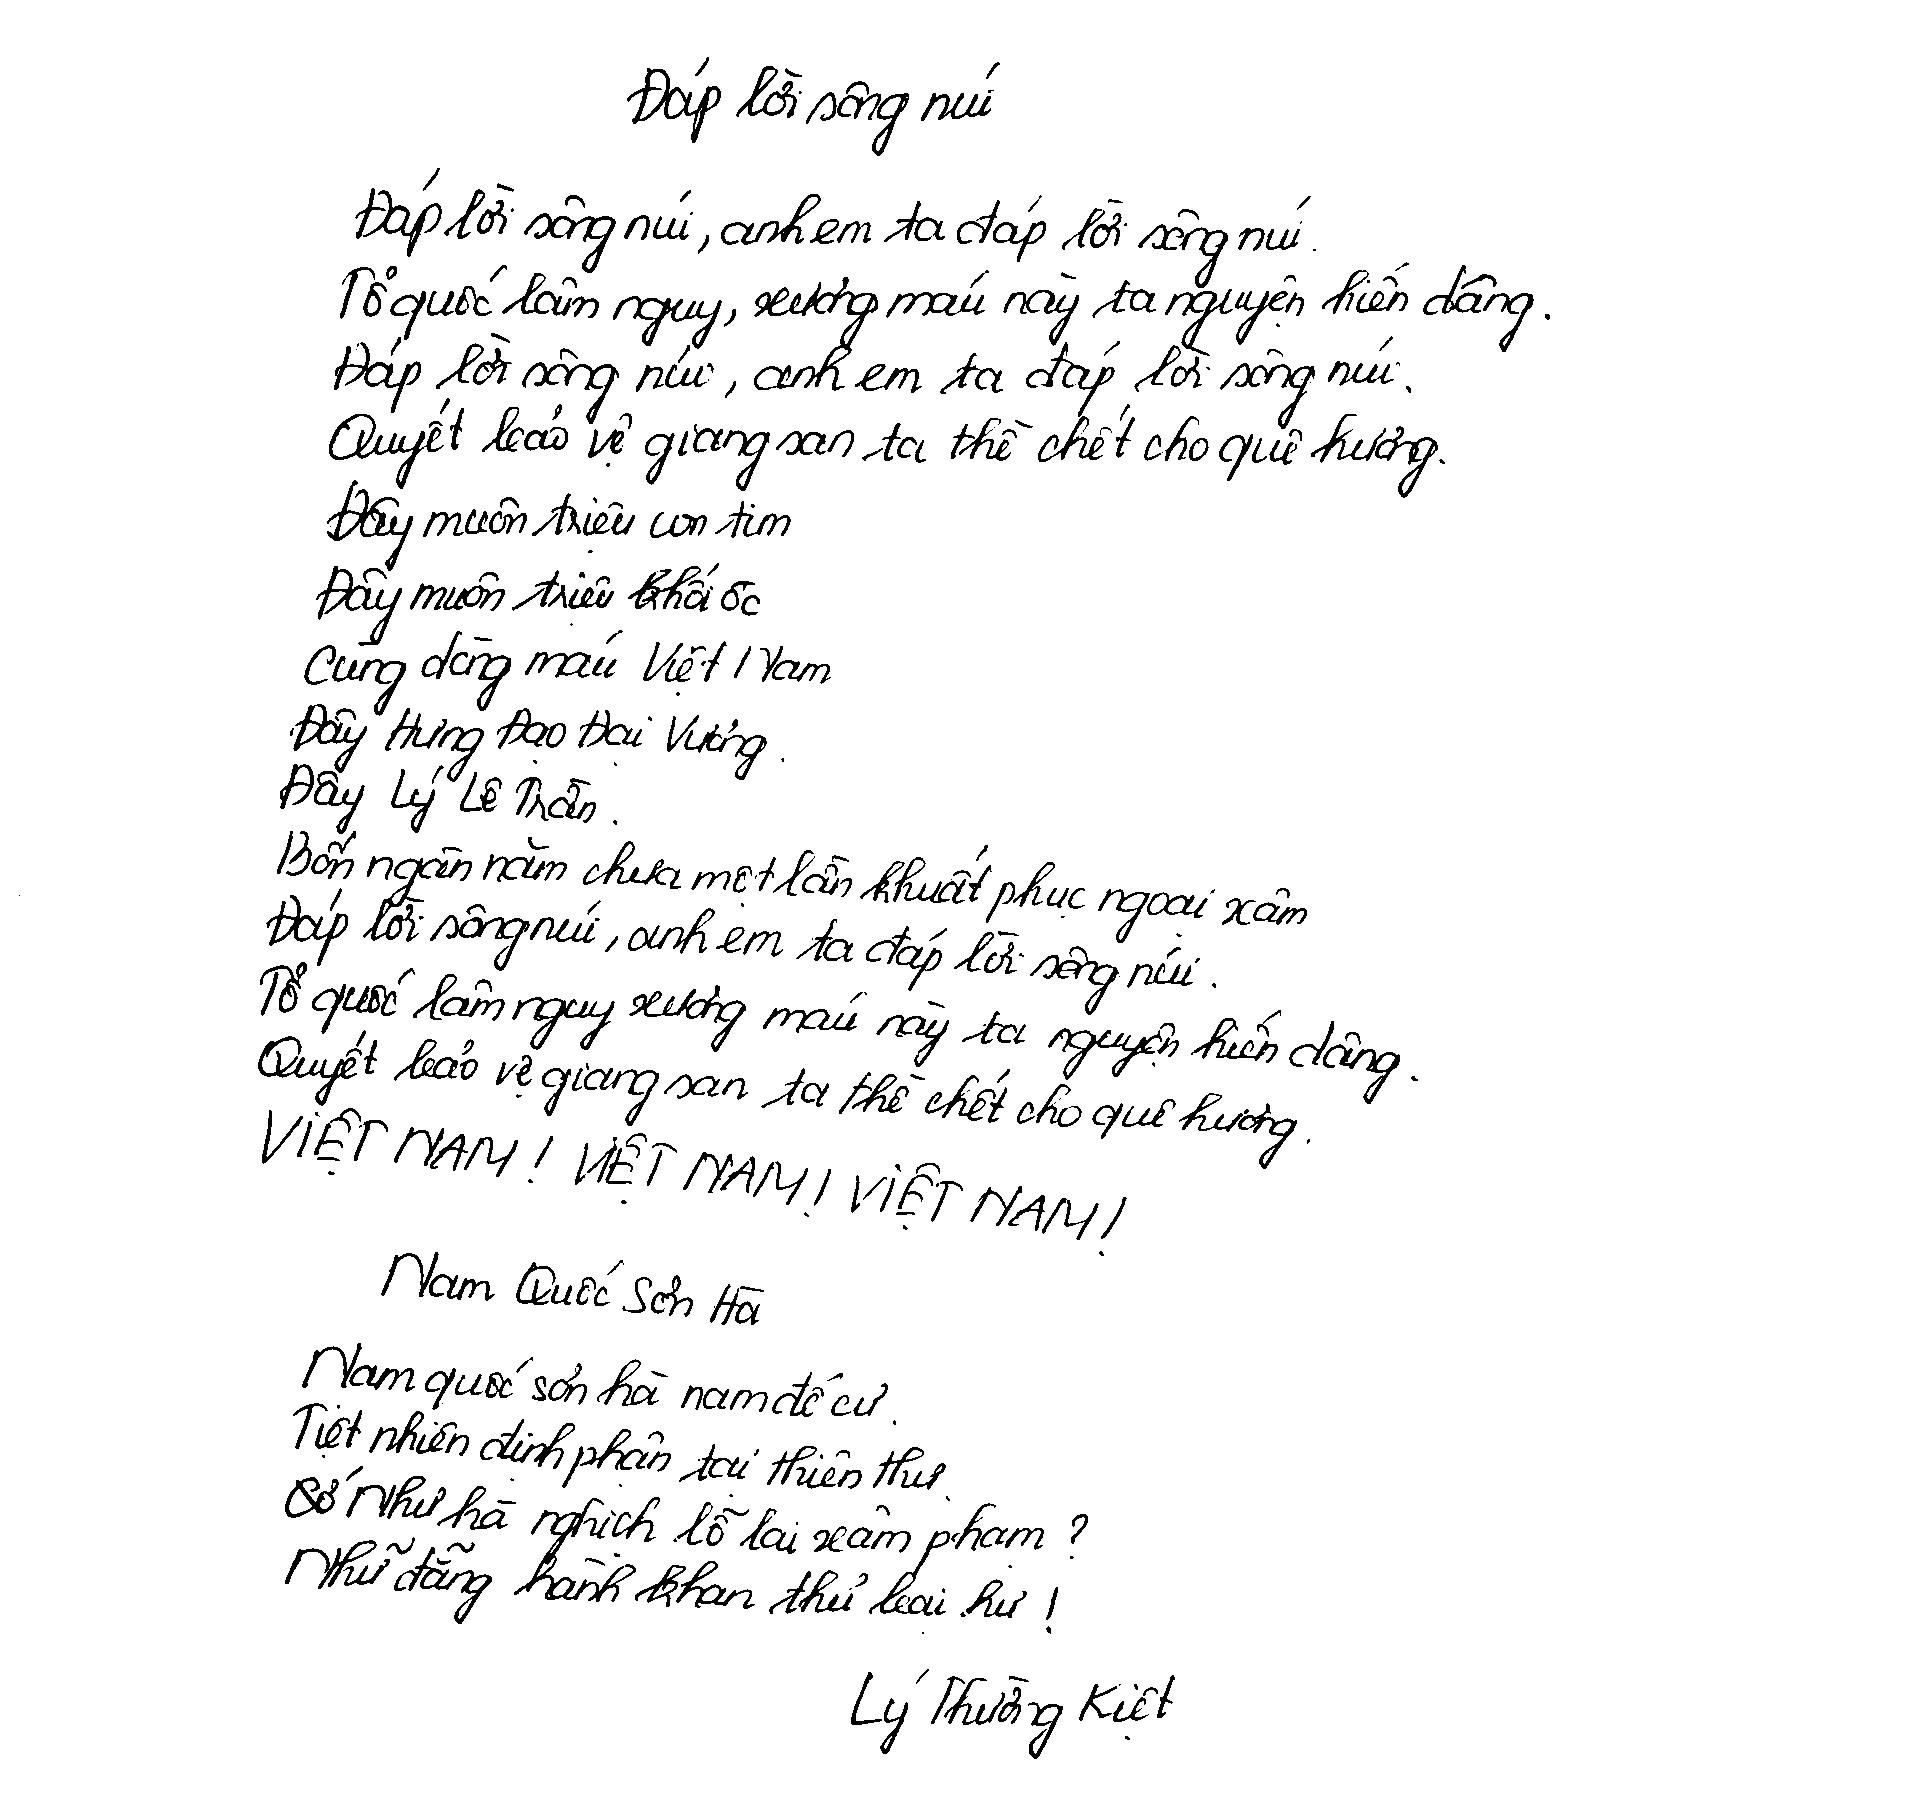 Đáp lời sông núi
Đáp lời sông núi, anh em ta đáp lời sông núi.
Tổ quốc lâm nguy, xương máu này ta nguyện hiến dâng.
Đáp lời sông núi, anh em ta đáp lời sông núi.
Quyết bảo vệ giang san ta thề chết cho quê hương.
Đây muôn triệu con tim
Đây muôn triệu khối óc
Cùng dòng máu Việt Nam
Đây Hưng Đạo Đại Vương.
Đây Lý Lê Trần.
Bốn ngàn năm chưa một lần khuất phục ngoại xâm
Đáp lời sông núi, anh em ta đáp lời sông núi.
Tổ quốc lâm nguy xương máu này ta nguyện hiến dâng.
Quyết bảo vệ giang san ta thề chết cho quê hương.
VIỆT NAM! VIỆT NAM! VIỆT NAM!
Nam Quốc Sơn Hà
Nam quốc sơn hà nam đế cư.
Tiệt nhiên định phận tại thiên thư.
Cớ Như hà nghịch lỗ lai xâm phạm?
Nhữ đẵng hành khan thử bại hư!
Lý Thường Kiệt